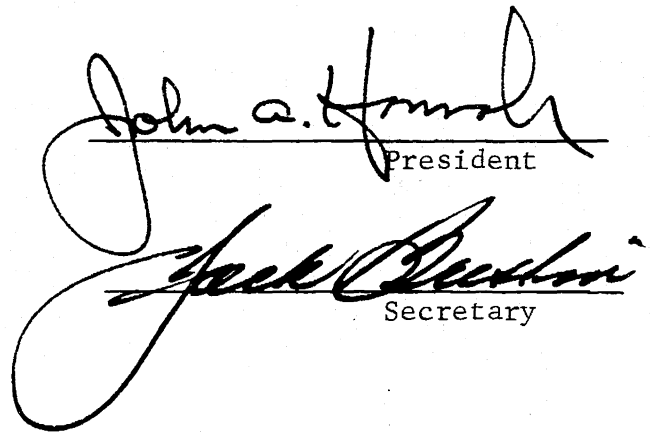 John A.
President
Jack
Secretary